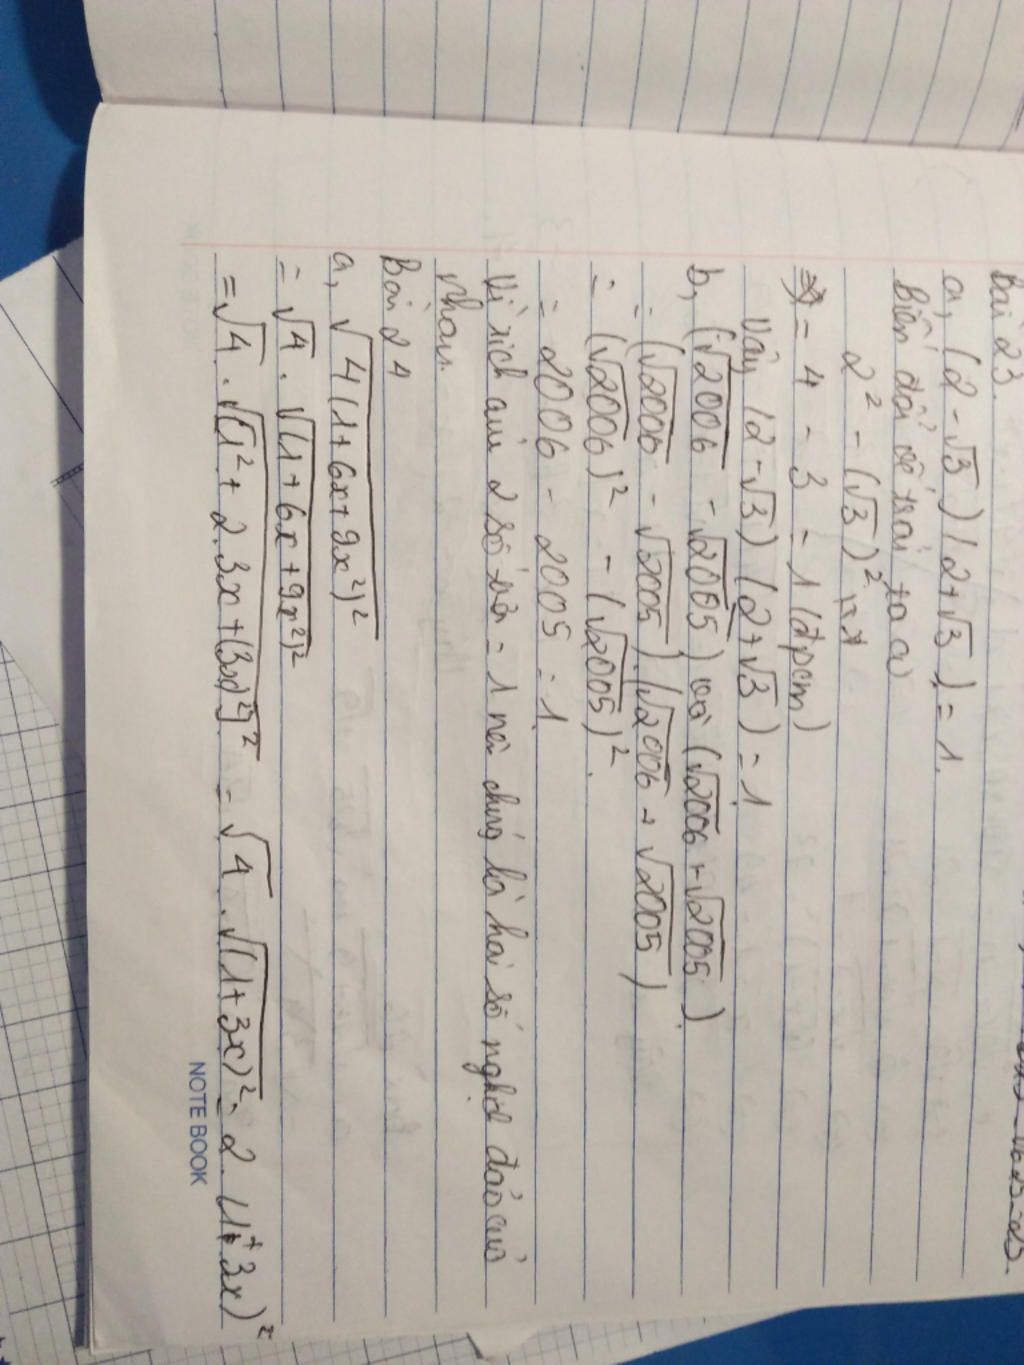 Bài 23.
a, (2 - √3)(2 + √3) = 1.
Biến đổi vế trái ta có
2² - (√3)²
= 4 - 3 = 1 (đpcm)
Vậy (2 - √3)(2 + √3) = 1
b, (√2006 - √2005) và (√2006 + √2005).
= (√2006 - √2005).(√2006 + √2005)
= (√2006)² - (√2005)².
= 2006 - 2005 = 1.
Vì tích của 2 số trên = 1 nên chúng là hai số nghịch đảo của
nhau.
Bài 24
a, √4(1 + 6x + 9x²)²
= √4 . √(1 + 6x + 9x²)²
= √4 . √[1² + 2.3x + (3x)²]² = √4 . √(1 + 3x)² = 2 . (1 + 3x)²
NOTE BOOK